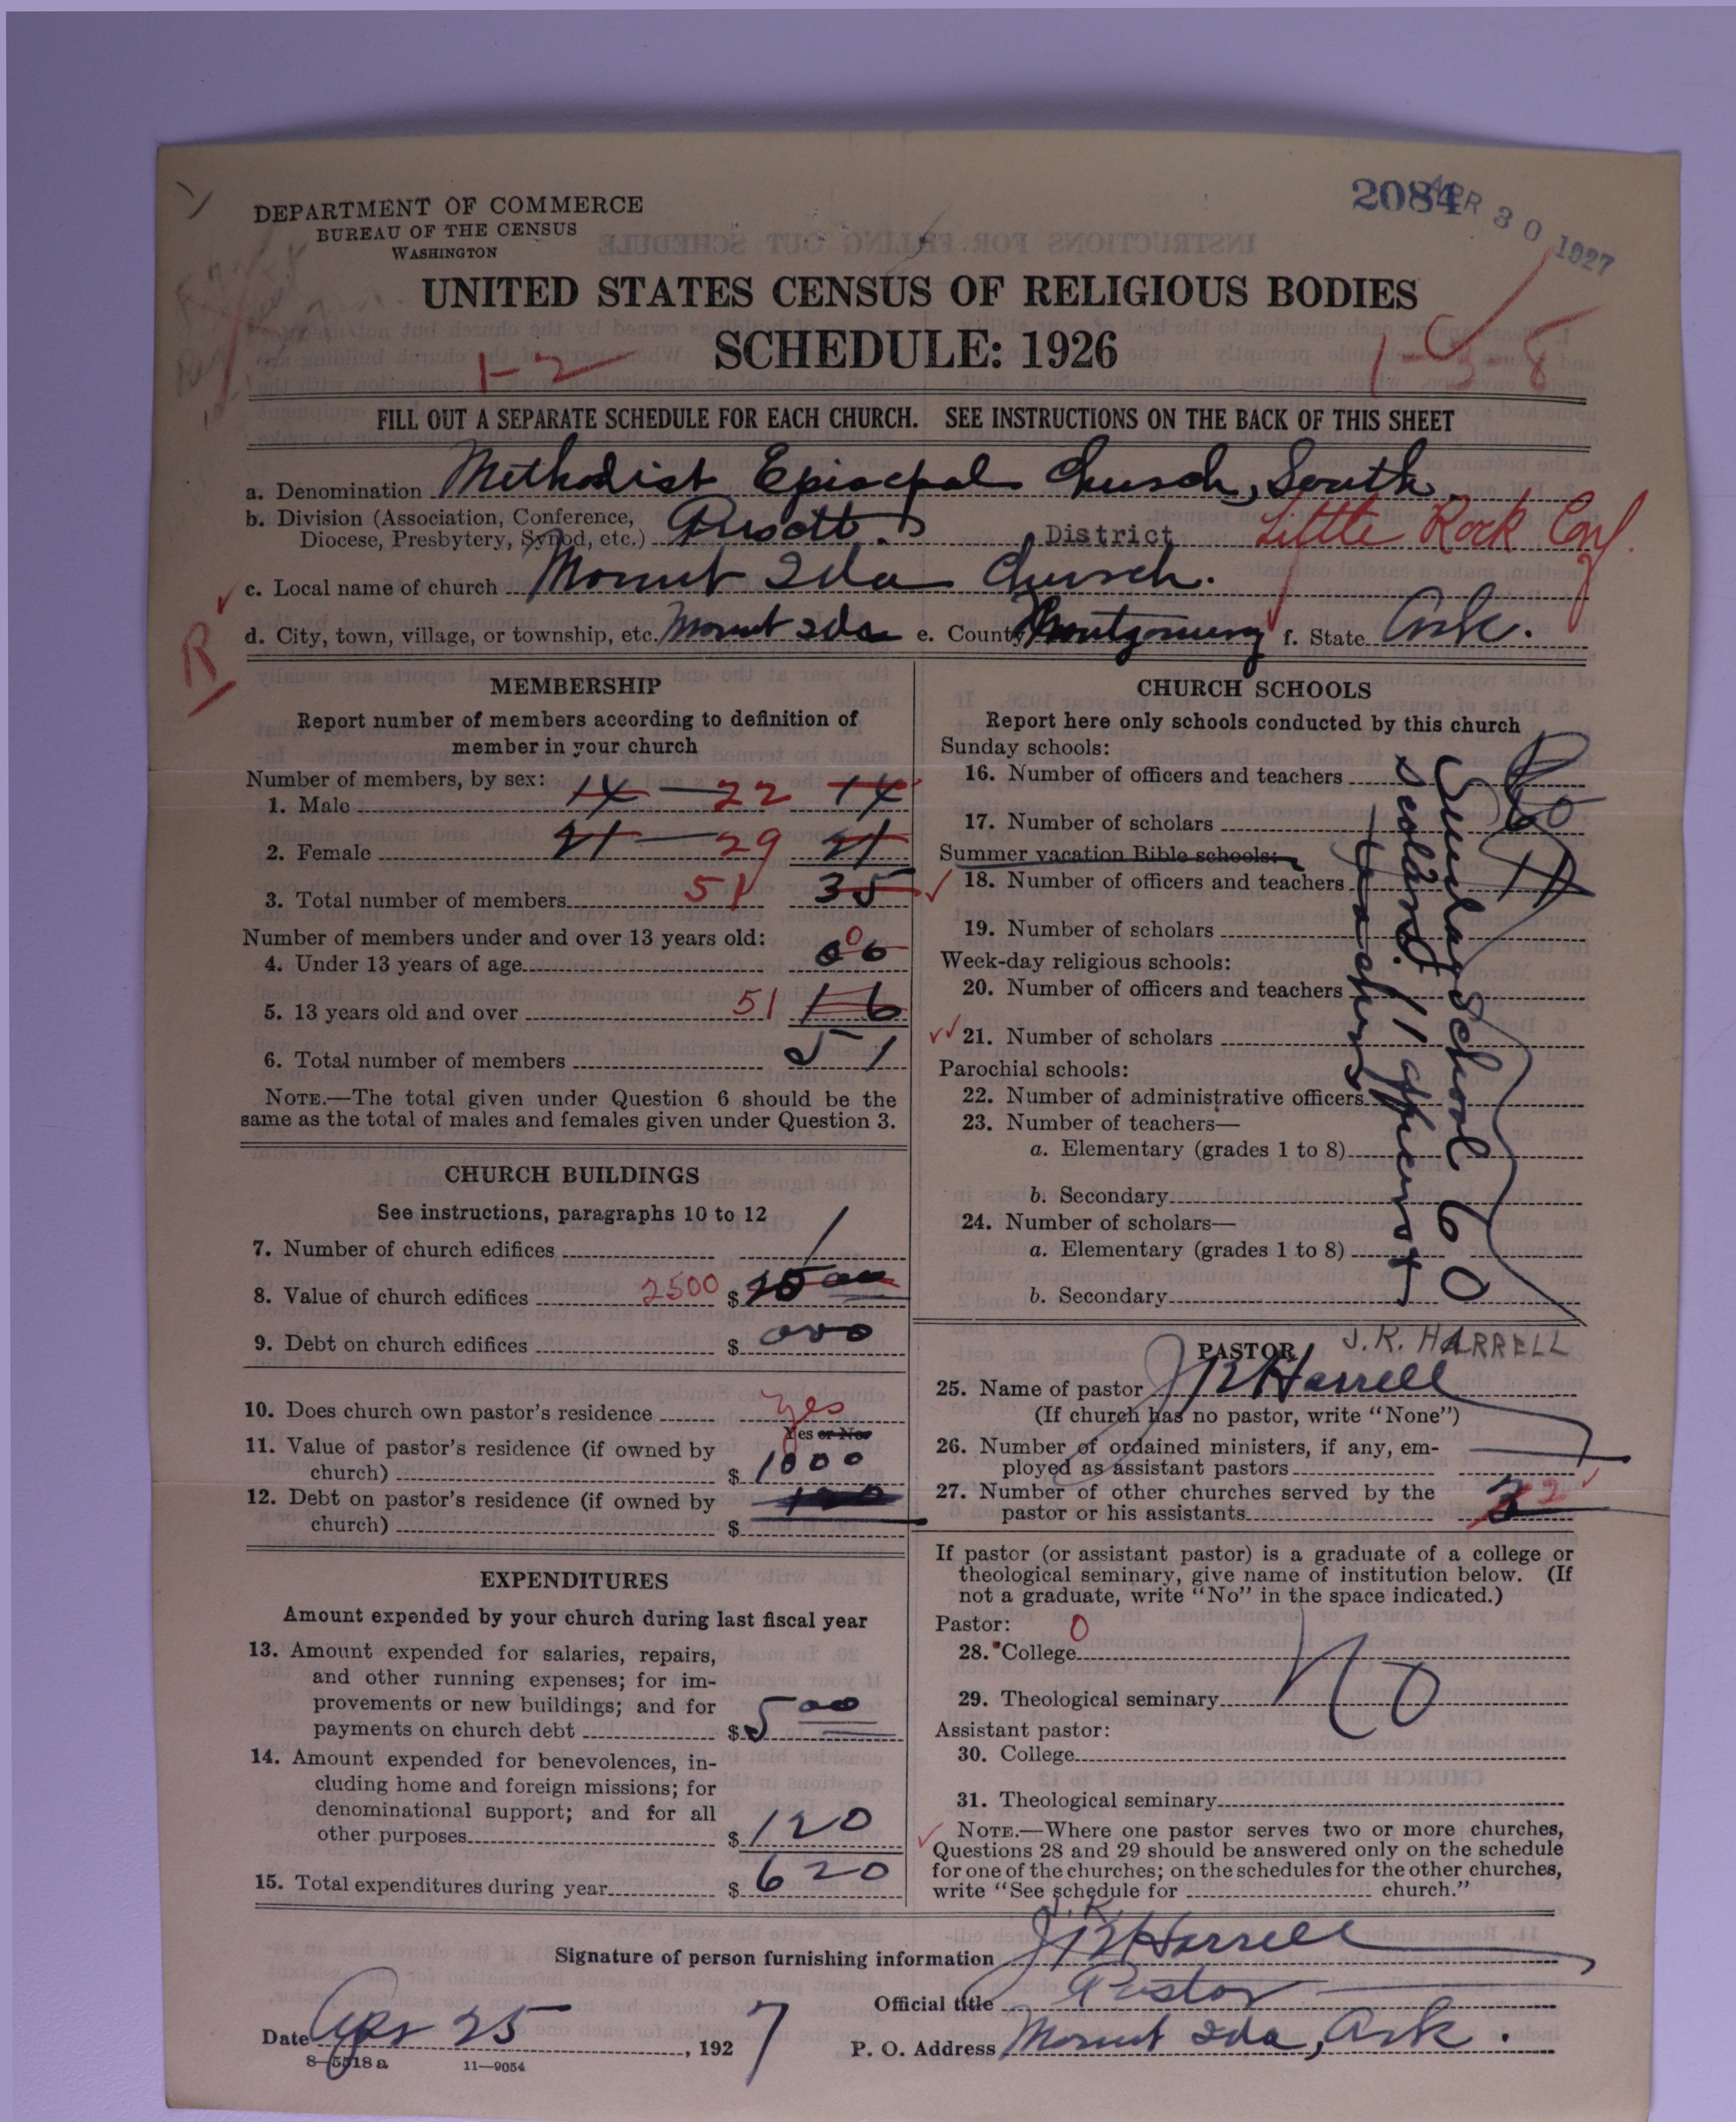 DEPARTMENT OF COMMERCE
BUREAU OF THE CENSUS
WASHINGTON
2084
APR 30 1927
UNITED STATES CENSUS OF RELIGIOUS BODIES
SCHEDULE: 1926
1-2
FILL OUT A SEPARATE SCHEDULE FOR EACH CHURCH. SEE INSTRUCTIONS ON THE BACK OF THIS SHEET
a. Denomination Methodist Episcopal Church, South
b. Division (Association, Conference, Diocese, Presbytery, Synod, etc.) District Little Rock Conf.
c. Local name of church Mount Ida Church.
R
d. City, town, village, or township, etc. Mount Ida e. County Montgomery f. State Ark.
MEMBERSHIP
Report number of members according to definition of
member in your church
Number of members, by sex:
1. Male 14 — 22 14
2. Female 21 — 29 21
3. Total number of members 51 35
Number of members under and over 13 years old:
4. Under 13 years of age 0
5. 13 years old and over 51 16
6. Total number of members 51
NOTE.—The total given under Question 6 should be the
same as the total of males and females given under Question 3.
CHURCH BUILDINGS
See instructions, paragraphs 10 to 12
7. Number of church edifices 1
8. Value of church edifices 2500 $
9. Debt on church edifices $ 000
10. Does church own pastor's residence yes
Yes or No
11. Value of pastor's residence (if owned by
church) $ 1000
12. Debt on pastor's residence (if owned by
church) $
EXPENDITURES
Amount expended by your church during last fiscal year
13. Amount expended for salaries, repairs,
and other running expenses; for im-
provements or new buildings; and for
payments on church debt $ 500
14. Amount expended for benevolences, in-
cluding home and foreign missions; for
denominational support; and for all
other purposes $ 120
15. Total expenditures during year $ 620
CHURCH SCHOOLS
Report here only schools conducted by this church
Sunday schools:
16. Number of officers and teachers
17. Number of scholars 60
Summer vacation Bible schools:
18. Number of officers and teachers
19. Number of scholars
Week-day religious schools:
20. Number of officers and teachers
21. Number of scholars
Parochial schools:
22. Number of administrative officers
23. Number of teachers—
a. Elementary (grades 1 to 8)
b. Secondary
24. Number of scholars—
a. Elementary (grades 1 to 8)
b. Secondary
Sunday School 60
scholars. 11 officers &
teachers
PASTOR J. R. HARRELL
25. Name of pastor J R Harrell
(If church has no pastor, write "None")
26. Number of ordained ministers, if any, em-
ployed as assistant pastors
27. Number of other churches served by the
pastor or his assistants 3 2
If pastor (or assistant pastor) is a graduate of a college or
theological seminary, give name of institution below. (If
not a graduate, write "No" in the space indicated.)
Pastor: 0
28. College
29. Theological seminary No
Assistant pastor:
30. College
31. Theological seminary
NOTE.—Where one pastor serves two or more churches,
Questions 28 and 29 should be answered only on the schedule
for one of the churches; on the schedules for the other churches,
write "See schedule for church."
J. R.
Signature of person furnishing information J R Harrell
Official title Pastor
Date Apr 25, 1927 P. O. Address Mount Ida, Ark.
8—5518 a 11—9054